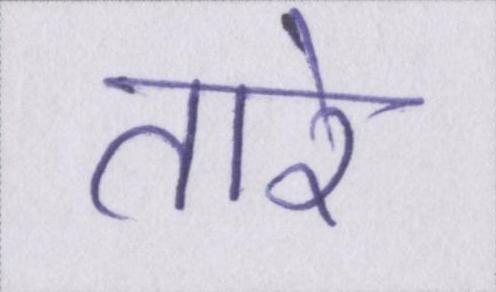 तारे